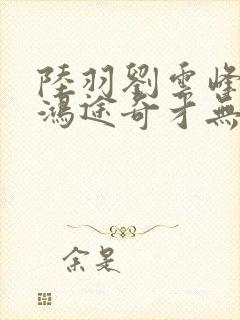 陸羽劉雲峰
鴻途奇才無
余是